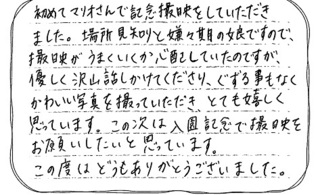 初めてマリオさんで記念撮映をしていただき
ました。場所見知りと嫌々期の娘ですので、
撮映がうまくいくか心配していたのですが、
優しく沢山話しかけてくださり、ぐずる事もなく
かわいい写真を撮っていただき、とても嬉しく
思っています。この次は入園記念で撮映を
お願いしたいと思っています。
この度はどうもありがとうございました。